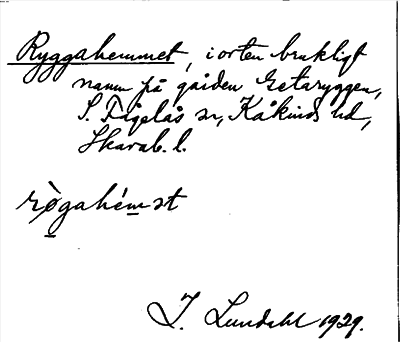 Ryggahemmet, i orten brukligt
namn på gården Getaryggen,
S. Fågelås sn, Kåkinds hd,
Skarab. l.
règahémət
I. Lundahl 1929.